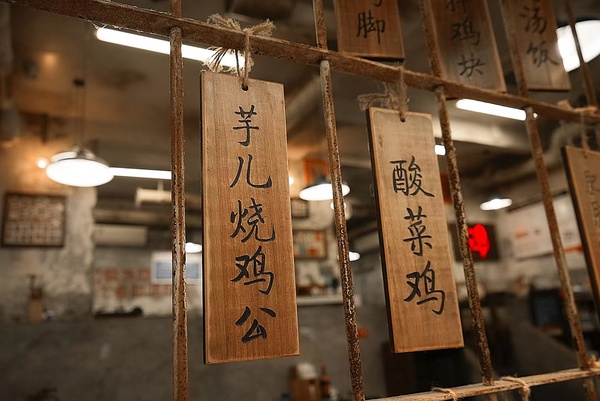 芋儿烧鸡公
酸菜鸡
脚
鸡块
汤饭